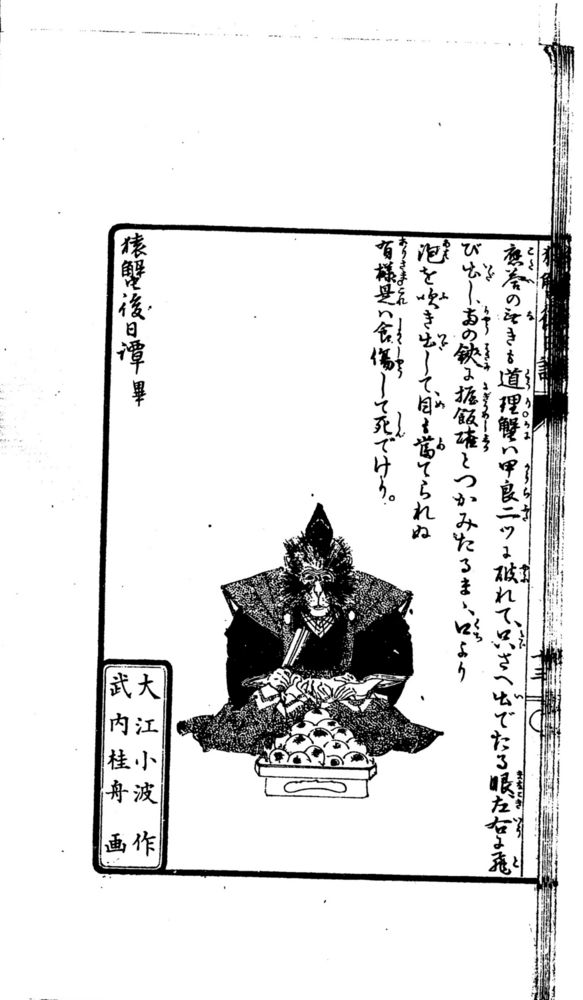 應答の無きも道理蟹ハ甲良二ツに破れて、只さへ出でたる眼左右に飛
び出し、両の鋏に握飯確とつかみたるまゝ、口より
泡を吹き出して、目も當てられぬ
有様是ハ食傷して死でけり。
猿蟹後日譚 畢
大江小波 作
武内桂舟 画